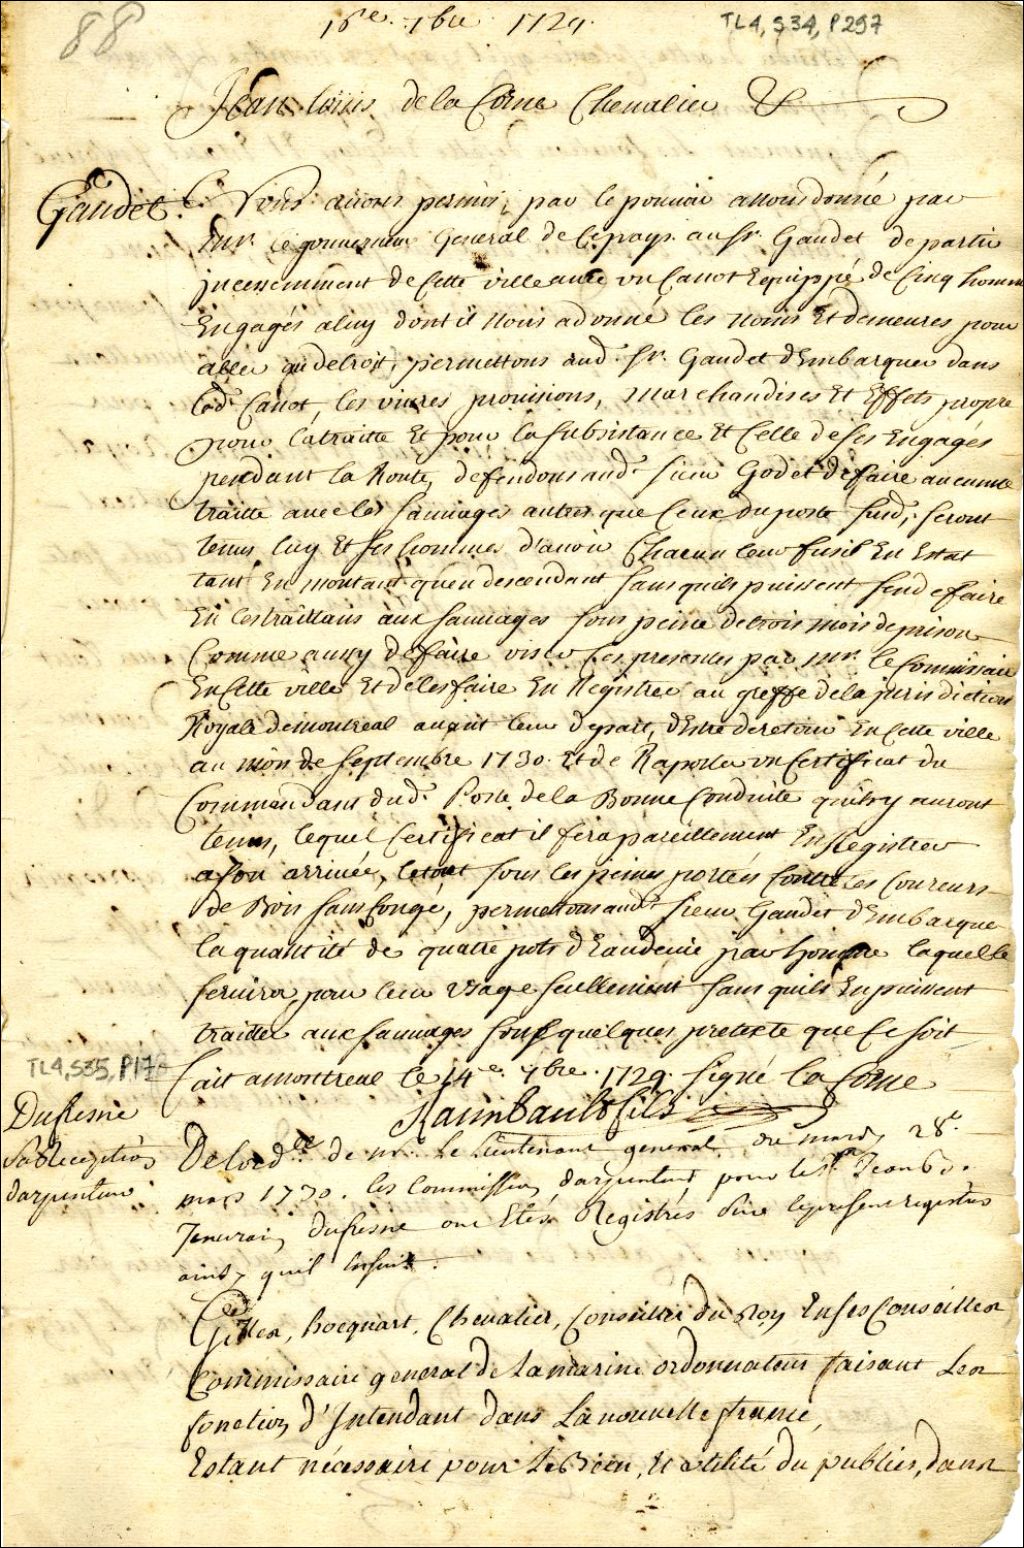 88
16e. 7bre 1729.
TL4, S34, P297
Jean Louis de la Corne Chevalier &
Gaudet.
Nous auons permis, par le pouuoir anous donné par
Mr. le gouuerneur General de Ce pays au Sr. Gaudet de partir
jncessemment de Cette ville auec un Canot Equippé de Cinq homm
Engagés aluy dont il nous a donné les noms Et demeures pour
aller au detroit, permettons aud. Sr. Gaudet d'Embarquer dans
led. Canot, les viures prouisions, marchandises Et Effets propre
pour la traitte Et pour la Subsistance Et Celle de Ses Engagés
pendant la Route, defendons aud. Sieur Godet de faire aucunne
traitte auec les Sauuages autres que Ceux du poste Susd; Seront
tenus luy Et Ses hommes d'auoir Chacun leur fusil En Estat
tant En montant quen descendant Sans quils puissent Sen defaire
En les traittans aux Sauuages Sous peine de trois mois de prison
Comme aussy de faire viser Ces presentes par Mr. le Commissaire
En Cette ville Et de les faire En Registrer au greffe de la jurisdiction
Royale de montreal auant leur depart, d'Estre de retour En Cette ville
au mois de Septembre 1730. Et de Raporter un Certificat du
Commandant dud. Poste de la Bonne Conduite quils y auront
tenus, lequel Certificat il fera pareillement En Registrer
a Son arriuée, le tout Sous les peines portées Contre les Coureurs
de Bois Sans Congé, permettons aud. Sieur Gaudet d'Embarquer
la quantité de quatre pots d'Eaudeuie par homme laquelle
Seruira pour leur Usage Seullement Sans quils En puissent
traitter aux Sauuages Sous quelques pretexte que Ce Soit
fait a montreal le 14e. 7bre. 1729. Signé la Corne
Raimbault fils
TL4, S35, P17
Dufresne
Sa Reception
darpenteur
De lord.ce de mr. Le Lieutenant general, du mardy 28e.
mars 1730. les Commission darpenteur, pour le Sr. Jean Bte.
Janurain Dufresne ont Etés Registrés Sur le present registre
ainsy quil Ensuit.
Gilles, hocquart, Chevalier, Conseiller du Roy En Ses Conseilles
Commissaire general de La marine ordonnateur faisant Les
fonction d'Intendant dans La nouuelle france,
Estant nécessaire pour Le Bien, Et utilité du publics, dans